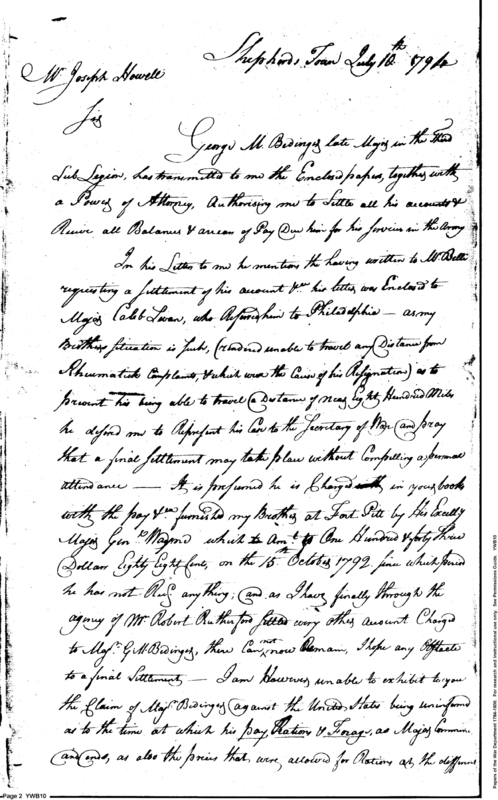 Shepherds Town July 10th 1794
Mr Joseph Howell
Sir
George M. Bedinger late Major in the Third
Sub Legion, has transmitted to me the Enclosed papers, together with
a Power of Attorney, Authorising me to Settle all his accounts &
Receive all Balances & arrears of Pay Due him for his Services in the Army
In his Letter to me he mentions the having written to Mr Belli
requesting a settlement of his account & his letter was Enclosed to
Major Caleb Swan, who Refers him to Philadelphia — as my
Brothers Situation is Such, (rendered unable to travel any Distance from
Rheumatick Complaints, & which were the Cause of his Resignation) as to
prevent his being able to travel a Distance of near Eight Hundred Miles
he desired me to Represent his Case to the Secretary of War and pray
that a final Settlement may take place without Compelling a personal
attendance — It is presumed he is Charged with in your books
with the pay &ca furnished my Brother at Fort Pitt by His Excelly
Major Genl Wayne which to Amt to One Hundred & forty three
Dollars Eighty Eight Cents, on the 15th October 1792. since which period
he has not Recd anything; and as I have finally through the
agency of Mr Robert Rutherford settled every other account Charged
to Majr G M Bedinger, there Can not now Remain, I hope any Obstacle
to a final Settlement — I am However unable to exhibit to you
the Claim of Majr Bedinger against the United States being uninformed
as to the time at which his pay Ration & Forage, as Major Commen-
and ends, as also the prices that were allowed for Rations at the different
Page 2 YWB10
Papers of the War Department 1784-1800. For research and instructional use only. See Permissions Guide. YWB10